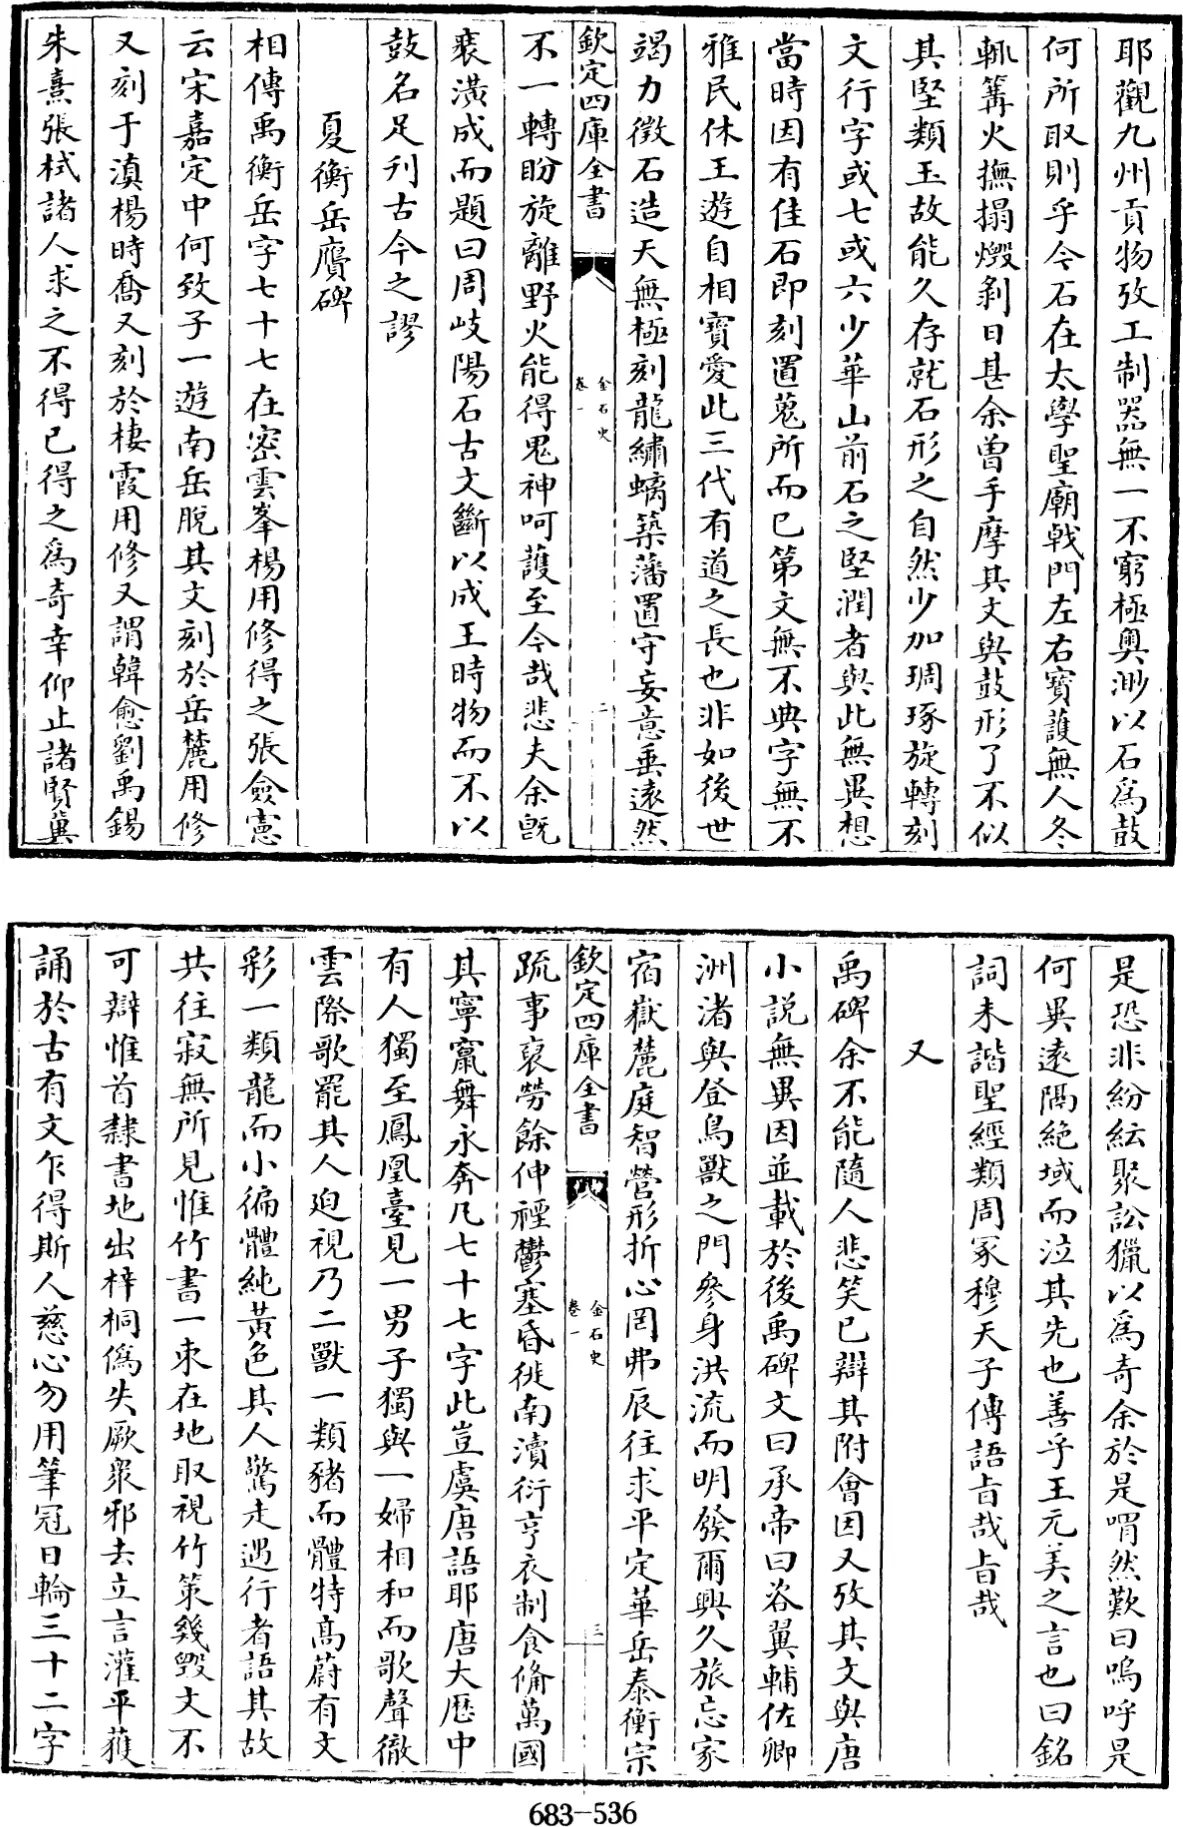 耶觀九州貢物攷工制器無一不窮極奧渺以石爲鼓
何所取則乎今石在太學聖廟戟門左右寳護無人冬
輒篝火撫搨燬剝日甚余曽手摩其文與鼓形了不似
其堅類玉故能久存就石形之自然少加琱琢旋轉刻
文行字或七或六少華山前石之堅潤者與此無異想
當時因有佳石即刻置蒐所而已第文無不典字無不
雅民休王遊自相寳愛此三代有道之長也非如後世
竭力徵石造天無極刻龍繡螭築藩置守妄意垂遠然
欽定四庫全書
金石史
卷一
二
不一轉盼旋離野火能得鬼神呵護至今哉悲夫余旣
裝潢成而題曰周岐陽石古文斷以成王時物而不以
鼓名足刋古今之謬
夏衡岳贗碑
相傳禹衡岳字七十七在密雲峯楊用修得之張僉憲
云宋嘉定中何致子一遊南岳脫其文刻於岳麓用修
又刻于滇楊時喬又刻於棲霞用修又謂韓愈劉禹錫
朱熹張栻諸人求之不得已得之爲奇幸仰止諸賢冀
是恐非紛紜聚訟獵以爲奇余於是喟然歎曰嗚呼是
何異遠隅絶域而泣其先也善乎王元美之言也曰銘
詞未諧聖經類周冢穆天子傳語旨哉旨哉
又
禹碑余不能隨人悲笑已辯其附會因又攷其文與唐
小說無異因並載於後禹碑文曰承帝曰咨翼輔佐卿
洲渚與登鳥獸之門參身洪流而明發爾興久旅忘家
宿嶽麓庭智營形折心罔弗辰往求平定華岳泰衡宗
欽定四庫全書
金石史
卷一
三
疏事裒勞餘伸禋鬱塞昏徙南瀆衍亨衣制食脩萬國
其寧竄舞永奔凡七十七字此豈虞唐語耶唐大厯中
有人獨至鳳凰臺見一男子獨與一婦相和而歌聲徹
雲際歌罷其人廹視乃二獸一類豬而體特高蔚有文
彩一類龍而小徧體純黃色其人驚走遇行者語其故
共往寂無所見惟竹書一束在地取視竹策幾毀文不
可辯惟首隸書地出梓桐僞失厥衆邪去立言灌平獲
誦於古有文乍得斯人慈心勿用筆冠日輪三十二字
683-536